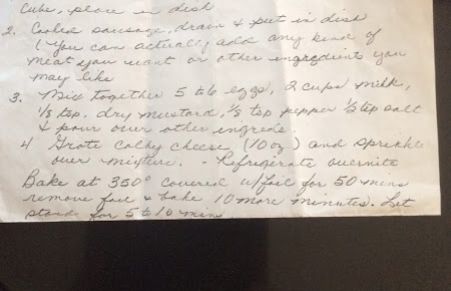 Cube, place in dish
2. Cooked sausage, drain & put in dish
(You can actually add any kind of
meat you want or other ingredient you
may like
3. Mix together 5 to 6 eggs, 2 cups milk,
1/8 tsp. dry mustard, 1/8 tsp pepper 1/2 tsp salt
& pour over other ingredi.
4 Grate Colby cheese (10 oz) and sprinkle
over mixture. - Refrigerate overnite
Bake at 350° covered w/foil for 50 mins
remove foil & bake 10 more minutes. Let
stand for 5 to 10 min